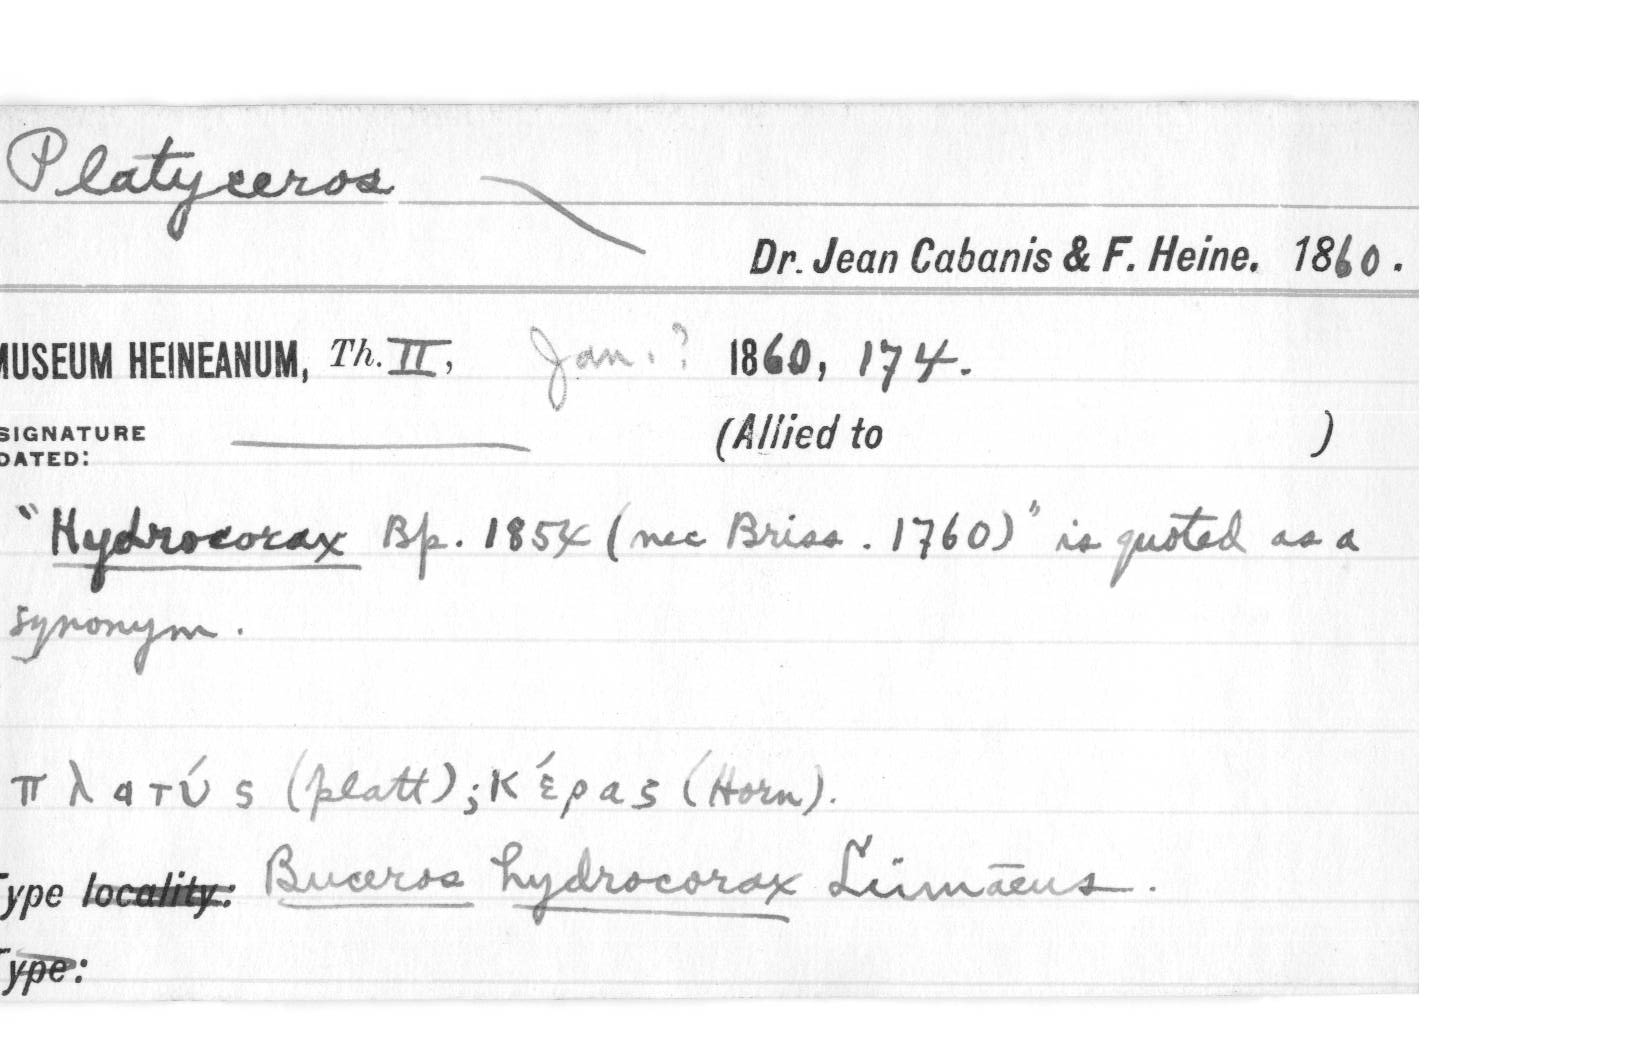 Platyceros
Dr. Jean Cabanis & F. Heine. 1860.
MUSEUM HEINEANUM, Th. II, Jan.? 1860, 174.
SIGNATURE
DATED:
(Allied to )
"Hydrocorax Bp. 1854 (nec Briss. 1760)" is quoted as a
synonym.
πλατύς (platt); κέρας (Horn).
Type locality: Buceros hydrocorax Linnaeus.
Type: